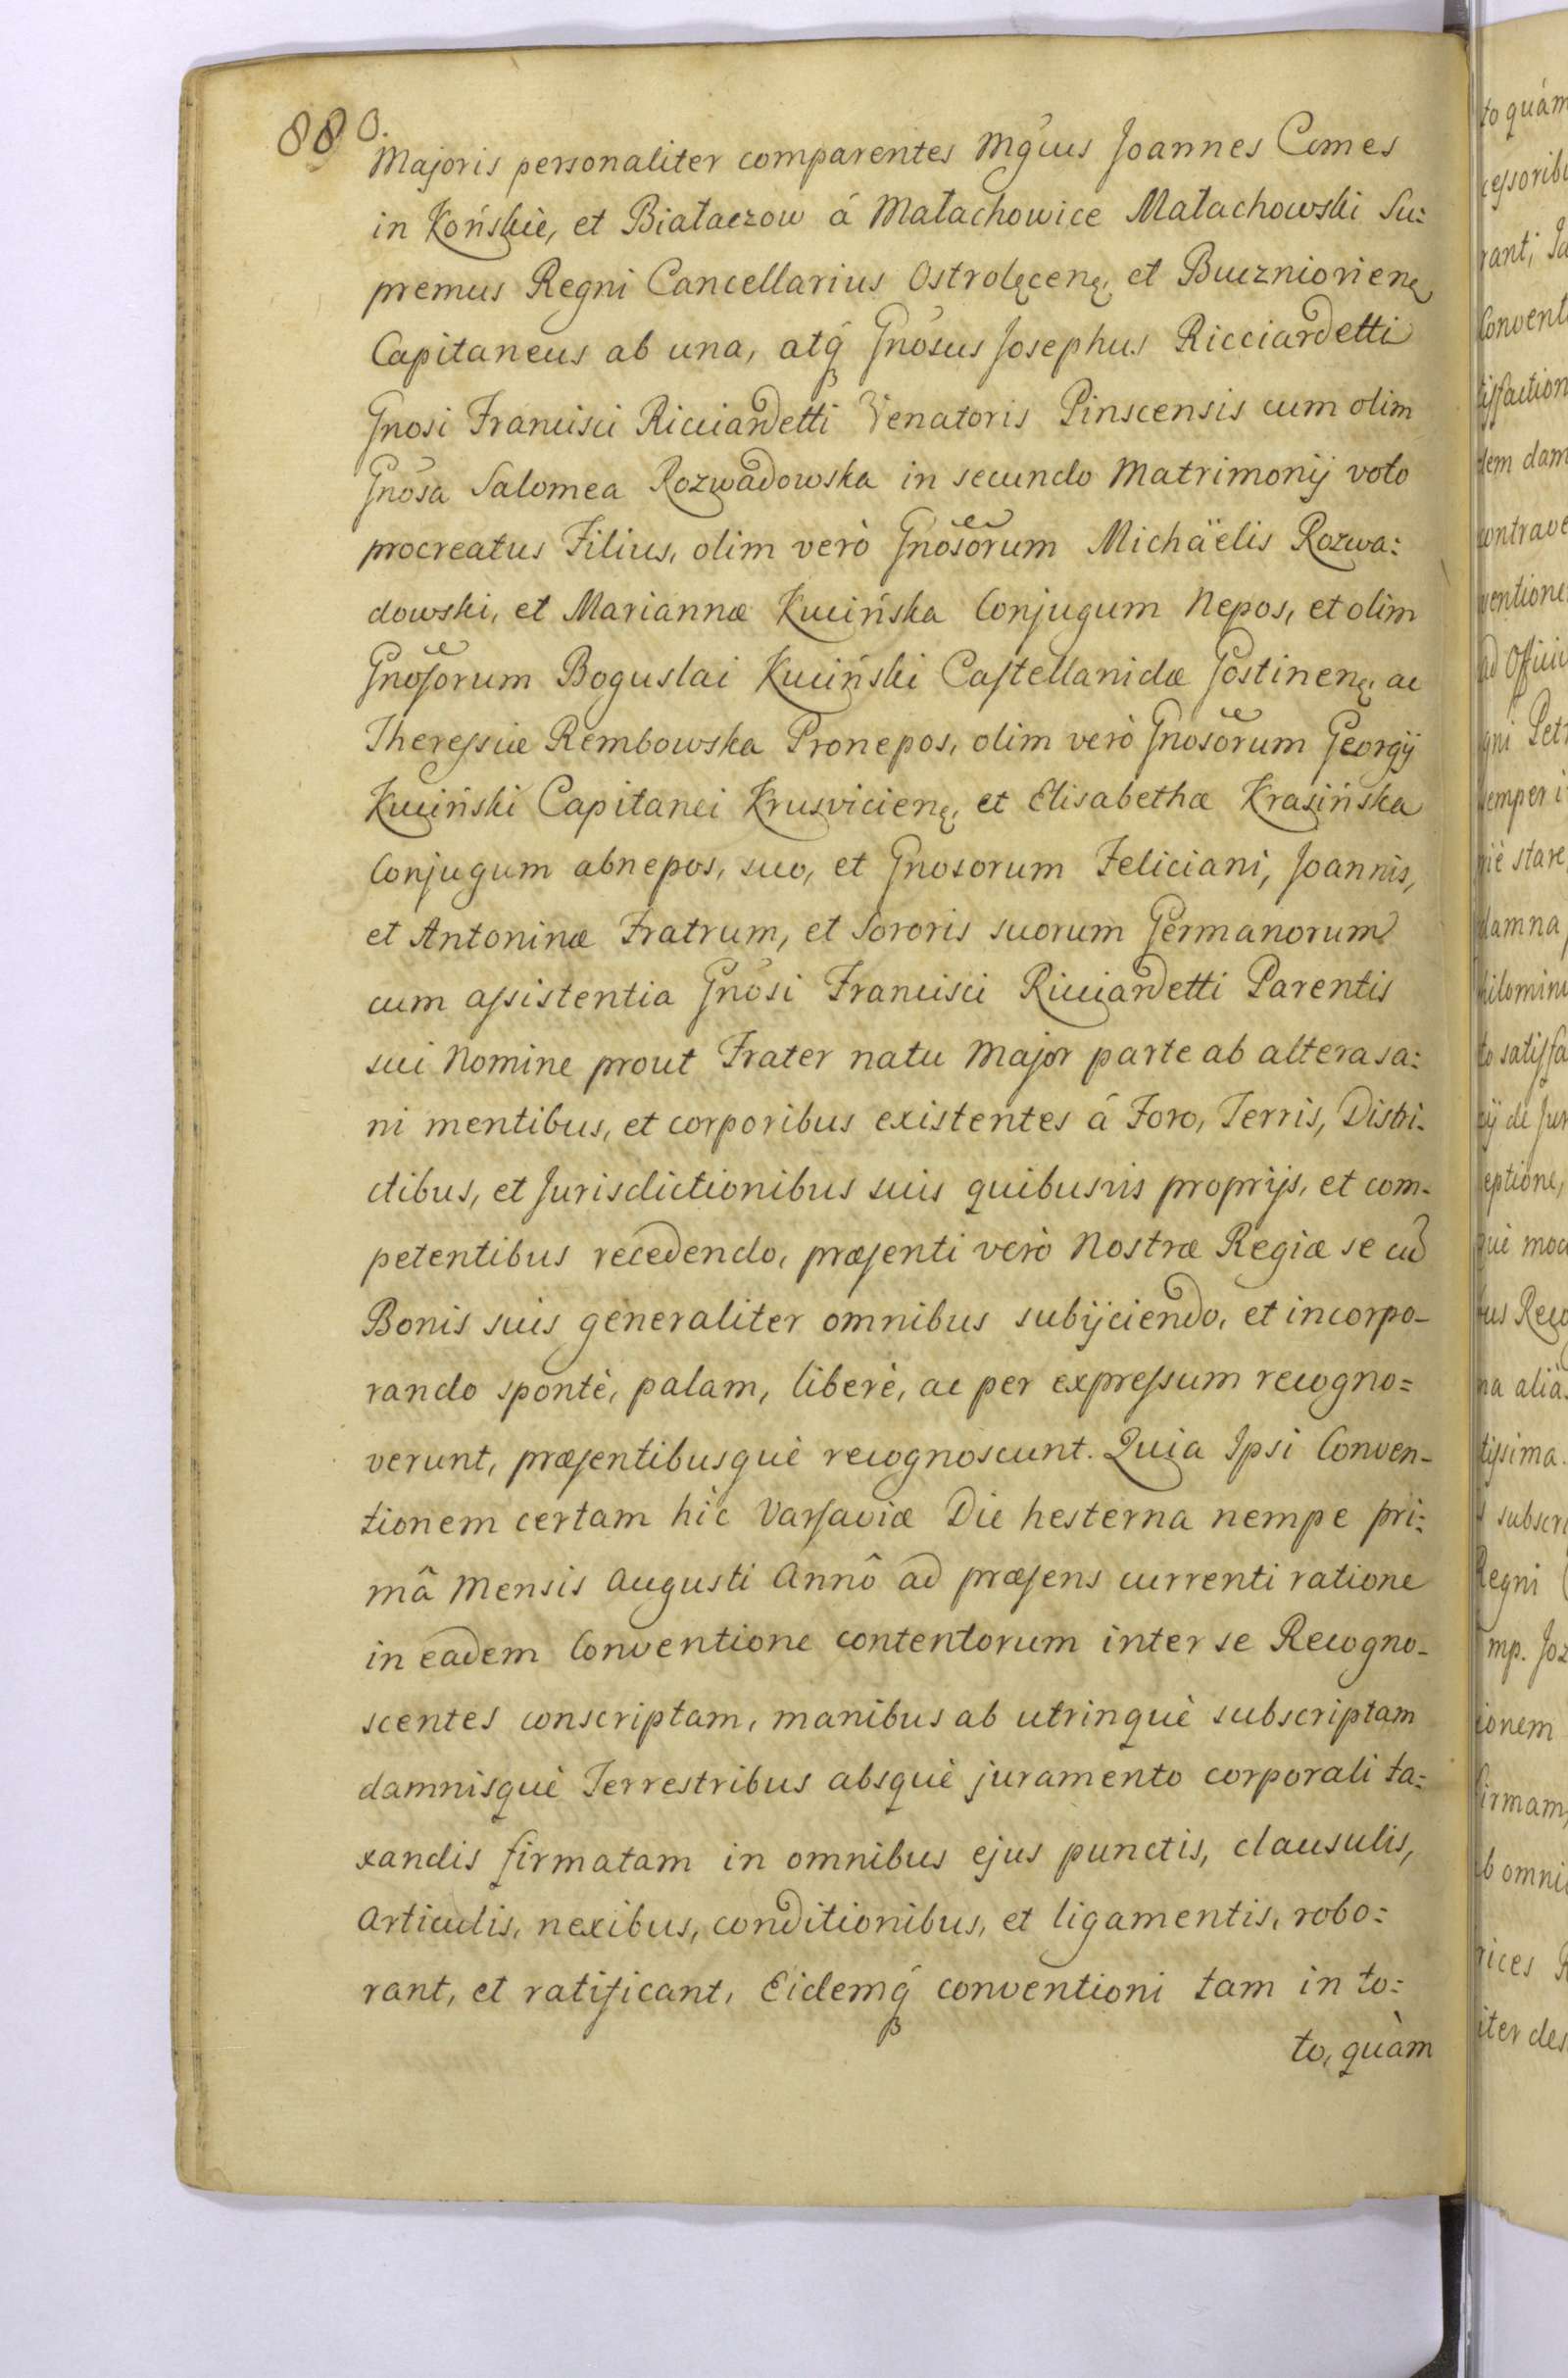 880.
Majoris personaliter comparentes Mgcus Joannes Comes
in Końskie, et Białaczow á Małachowice Małachowski Su:
premus Regni Cancellarius Ostrolęcenę, et Buczniovienę
Capitaneus ab una, atq́ Gnosus Josephus Ricciardetti
Gnosi Francisci Ricciardetti Venatoris Pinscensis cum olim
Gnosa Salomea Rozwadowska in secundo Matrimonij voto
procreatus Filius, olim verò Gnosorum Michäelis Rozwa:
dowski, et Mariannæ Kucińska Conjugum Nepos, et olim
Gnosorum Boguslai Kuciński Castellanidæ Gostinenę, ac
Theressiæ Rembowska Pronepos, olim verò Gnosorum Georgij
Kuciński Capitanei Krusvicienę, et Elisabethæ Krasińska
Conjugum abnepos, suo, et Gnosorum Feliciani, Joannis,
et Antoninæ Fratrum, et Sororis suorum Germanorum
cum assistentia Gnosi Francisci Ricciardetti Parentis
sui Nomine prout Frater natu Major parte ab altera sa:
ni mentibus, et corporibus existentes á Foro, Terris, Distri:
ctibus, et Jurisdictionibus suis quibusvis proprijs, et com-
petentibus recedendo, præsenti verò Nostræ Regiæ se cū
Bonis suis generaliter omnibus subijciendo, et incorpo-
rando spontè, palam, liberè, ac per expressum recogno=
verunt, præsentibusquè recognoscunt. Quia Ipsi Conven-
tionem certam hìc Varsaviæ Die hesterna nempe pri:
mâ Mensis Augusti Annô ad præsens currenti ratione
in eadem Conventione contentorum inter se Recogno-
scentes conscriptam, manibus ab utrinquè subscriptam
damnisquè Terrestribus absquè juramento corporali ta:
xandis firmatam in omnibus ejus punctis, clausulis,
Articulis, nexibus, conditionibus, et ligamentis, robo:
rant, et ratificant, Eidemq́ conventioni tam in to:
to, quàm